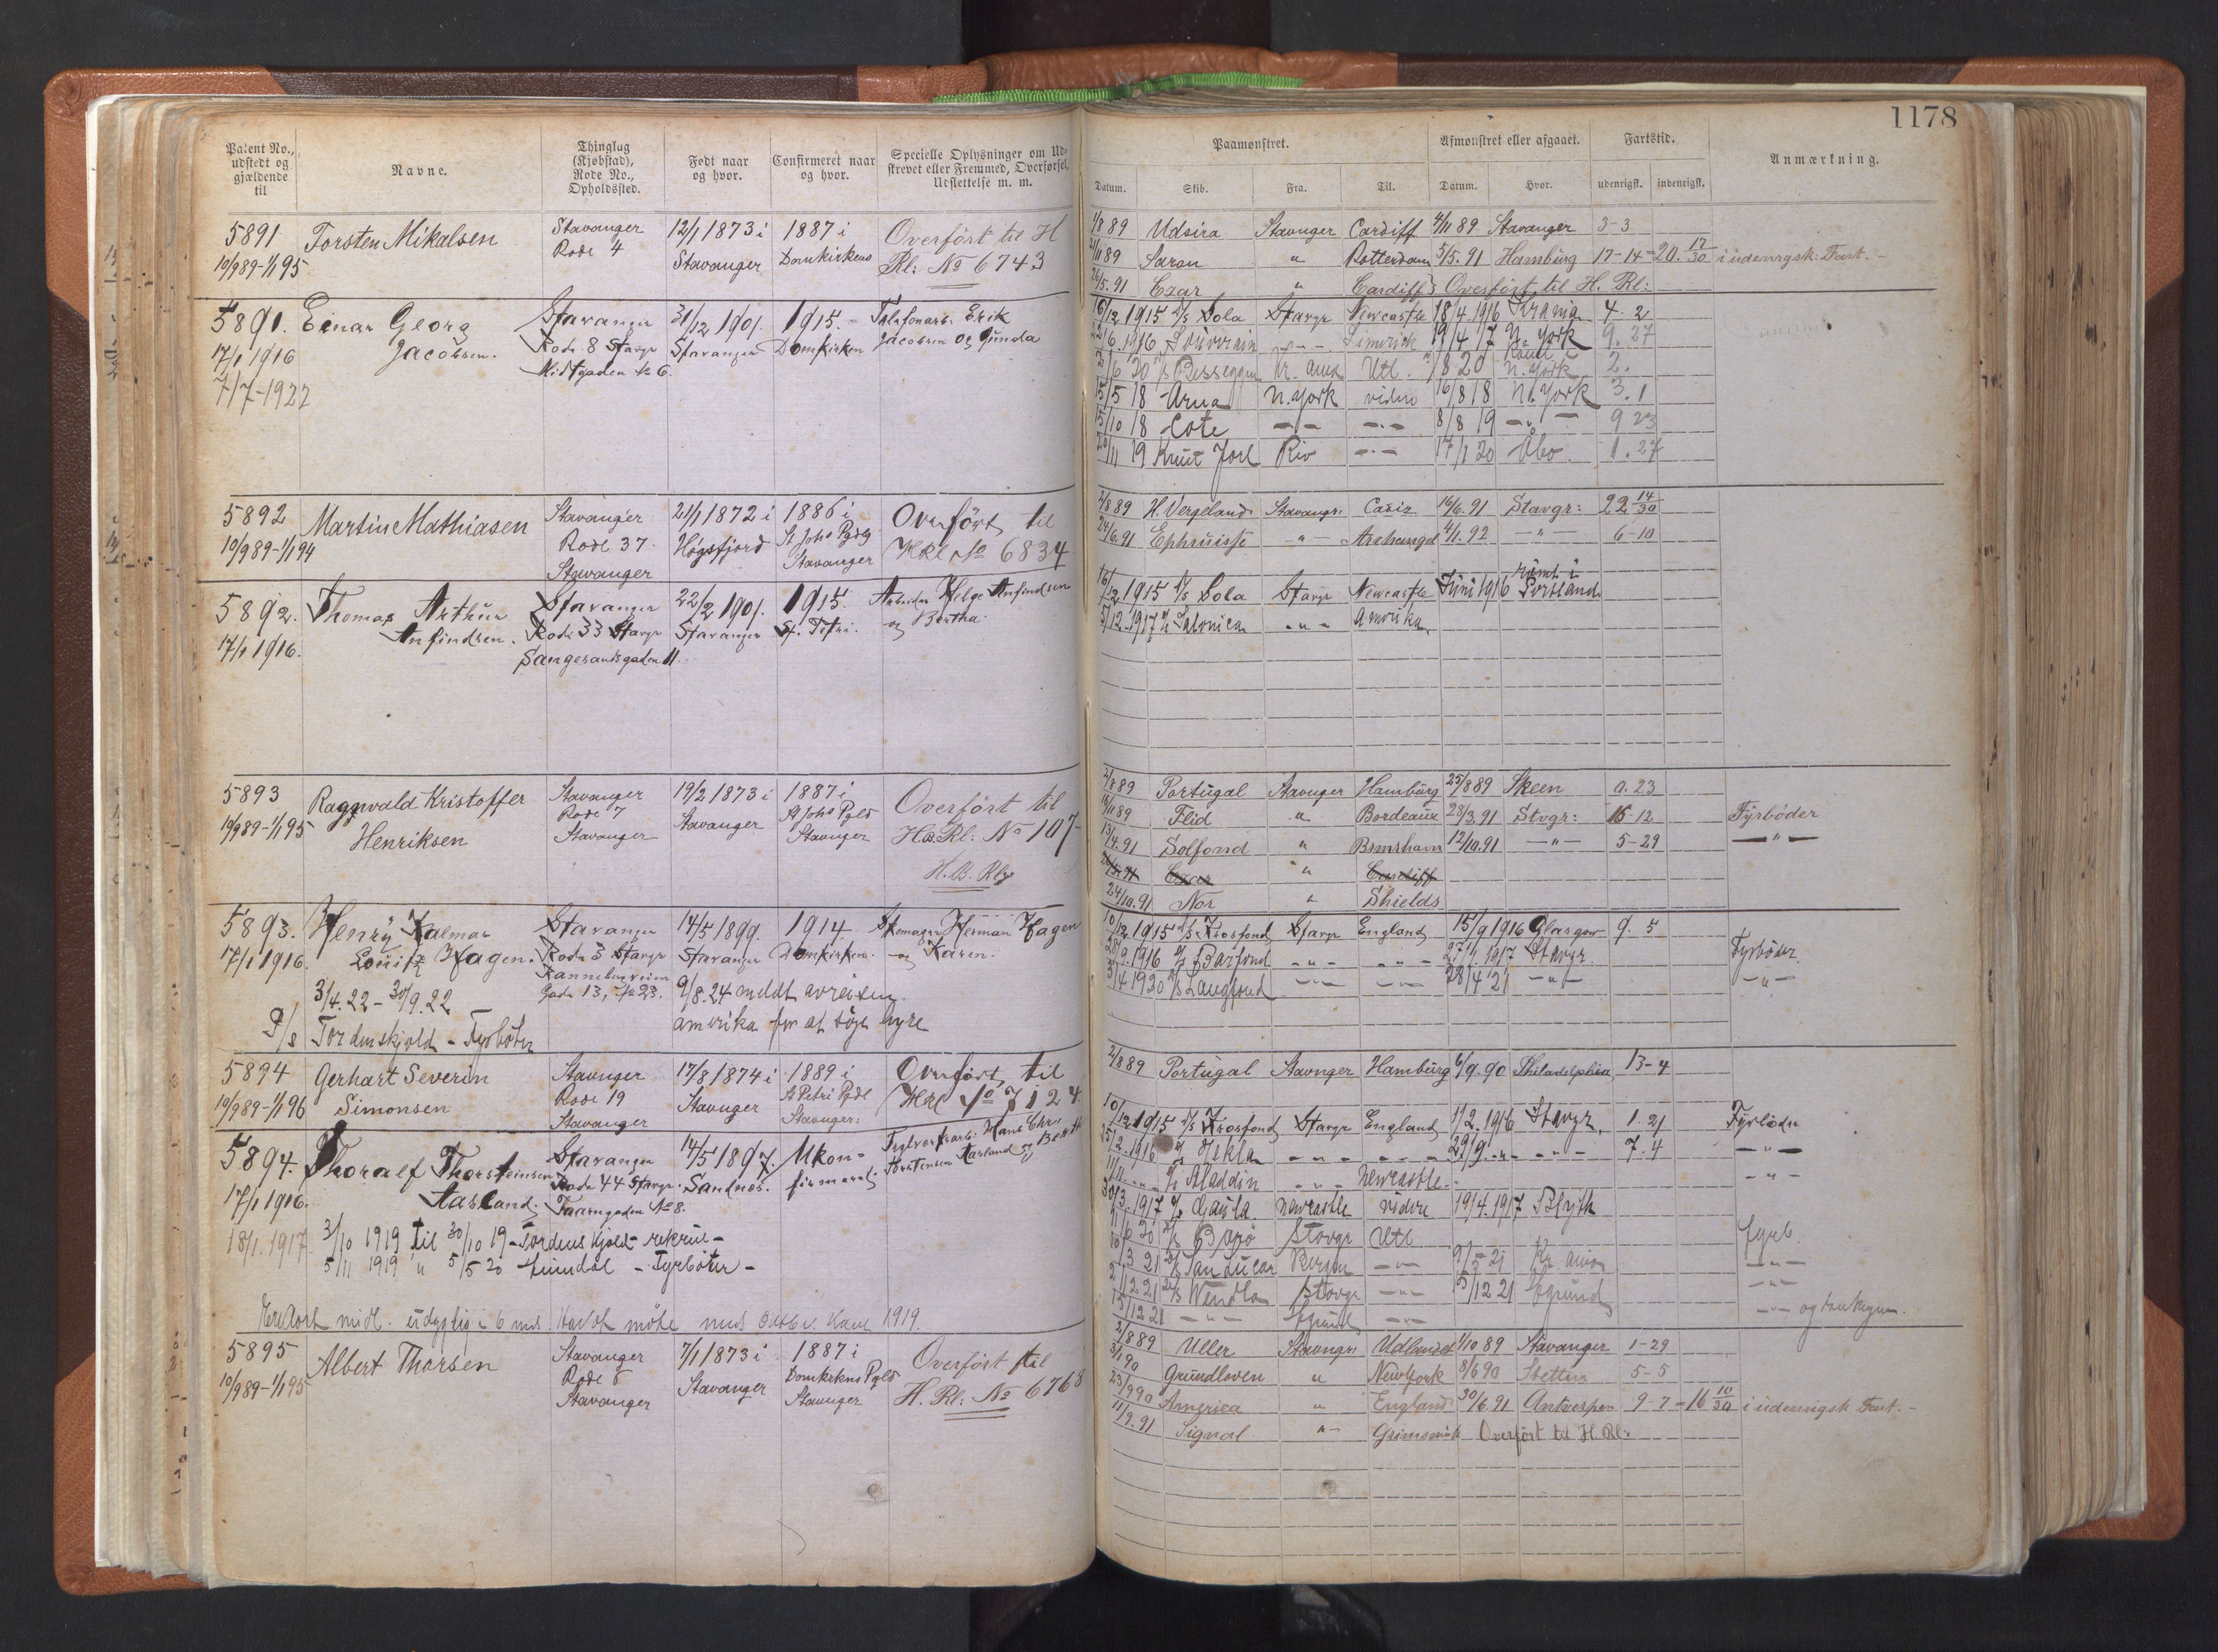 1178
Patent No., udstedt og gjældende til
Navne.
Thinglag (Kjøbstad), Rode No., Opholdssted.
Født naar og hvor.
Confirmeret naar og hvor.
Specielle Oplysninger om Udskrevet eller Fremmed, Overførsel, Udslettelse m. m.
Paamønstret.
Afmønstret eller afgaaet.
Fartstid.
Anmærkning.
Datum. Skib. Fra. Til. Datum. Hvor. udenrigsk. indenrigsk.
5891 Torsten Mikalsen Stavanger 12/1 1873 i 1887 i Overført til H
10/9 89-1/1 95 Rode 4 Stavanger Domkirkens Rl: No 6743
1/8 89 Udsira Stavnger Cardiff 4/11 89 Stavanger 3-3
21/11 89 Saron " Rotterdam 5/5.91 Hamburg 17-14 = 20. 17/30 i udenrigsk: Fart.-
26/5.91 Czar " Cardiff Overført til H. Rl:
5891. Einar Georg Stavanger 31/12 1901. 1915. Telefonarb. Erik
17/1 1916 Jacobsen. Rode 8 Stavgr Stavanger Domkirken Jacobsen og Gunda
7/7-1922 Midtgaden № 6.
16/12 1915 D/S Sola Stavgr Newcastle 18/4 1916 4. 2
22/6 1916 Limerick 19/4 17 N. York 9. 27
Utl. 20 N. York 2.
15/5 18 Arna N. York vidre 16/8 18 N. York 3. 1
15/10 18 Cote -"- -"- 8/8 19 -"- 9 23
20/11 19 Knut Jarl Riv -"- 17/1 20 Åbo. 1. 27
5892 Martin Mathiasen Stavanger 21/1 1872 i 1886 i Overført til
10/9 89-1/1 94 Rode 37. Høgsfjord St Johs Pgdg HRl No 6834
Stavanger Stavanger
2/8 89 H. Vergeland Stavangr. Cadiz 16/6. 91 Stavgr: 22 14/30
24/6.91 Ephruisse -"- Archangel 4/1. 92 -"- 6-10
5892. Thomas Arthur Stavanger 22/2 1901. 1915. Arbeider Helge Anfindsen
17/1 1916. Anfindsen. Rode 33 Stavgr Stavanger St. Petri. og Bertha.
Sangesandsgaden 11.
16/12 1915 D/S Sola Stavgr Newcastle Juni 1916 rømt i Portland
5/12. 1917 Salonica -"- Amerika.
5893 Ragnvald Kristoffer Stavanger 19/2 1873 i 1887 i Overført til
10/9 89-1/1 95 Henriksen Rode 7 Stavanger St Johs Pgld H.B.Rl: No 107-
Stavanger Stavnger H.B. Rl
2/8 89 Portugal Stavnger Hamburg 25/8 89 Skeen 0. 23
16/11 89 Flid " Bordeaux 28/3.91 Stvgr: 16-12 Fyrbøder
13/4.91 Solfond " 12/10.91 -"- 5-29 -"-
Czar " Cardiff
24/10.91 Nor " Shields
5893. Henry Kalmar Stavanger 14/5 1899. 1914 Skomager Herman Hagen
17/1 1916. Louitz Hagen. Rode 3 Stavgr Stavanger Domkirken. og Karen.
3/4. 22 - 30/9. 22 Gade 13, № 23. 9/8. 24 meldt avreisen
Tordenskjold - Fyrbøter amerika for at søge hyre
10/12 1915 D/S Krosfond Stavgr England 15/9 1916 Glasgow 9. 5
20/9. 1916 D/S Barfond -"- -"- 27/1. 1917 Stavgr. Fyrbøder
3/4 1920 D/S Langfond -"- -"- 28/4 21 -"- -"-
5894 Gerhart Severin Stavnger 17/8 1874 i 1889 i Overført til
10/9 89-1/1 96 Simonsen Rode 19 Stavnger St Petri Pgdl HRl No 7124
Stavanger Stavanger:
2/8 89 Portugal Stavnger Hamburg 6/9. 90 Philadelphia 13-4
5894. Thoralf Thorsteinsen Stavanger 14/5 1897. Ukon- Hans Chr.
17/1 1916. Aasland. Rode 44 Stavgr. Sandnes. firmeret. Torstensen Aasland og Berthe
18/1. 1917. 3/10 1919 til 30/10 19 - Tordenskjold - rekrut -
5/11 1919 " 5/5 20 - Fyrbøter -
10/12 1915 D/S Krosfond Stavgr England 1/2. 1916 Stavgr. 1. 21 Fyrbøder
25/2. 1916 Hekla -"- -"- 29/9. -"- -"- 7. 4 -"-
Aladdin -"- Newcastle. -"-
30/3. 1917 Gaula. Newcastle vidre 19/4. 1917 Blyth
Stavgr Utl fyrb.
3 21 San Lucar Bergen -"- -"-
12 21 Wendla Stavgr -"- 12 21 Egersund -"-
15/12 21 -"- -"- -"- og
1919.
5895 Albert Thorsen Stavanger 7/1 1873 i 1887 i Overført til
10/9 89-1/1 95 Rode 8 Stavanger Domkirkens Pgld H. Rl: No 6768
Stavanger Stavnger
2/8 89 Uller Stavngr Udlandet 1/10 89 Stavanger 1-29
3/1 90 Grundloven " New York 8/6 90 Stettin 5-5
23/9 90 America " England 30/6.91 Antwerpen 9-7 = 16 10/30 i udenrigsk Fart.-
11/9.91 Signal " Overført til H Rl: